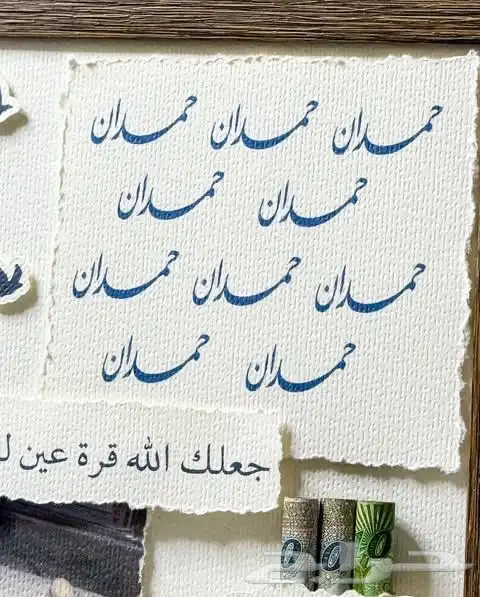 حمدان حمدان حمدان
حمدان حمدان
حمدان حمدان حمدان
حمدان حمدان
جعلك الله قرة عين